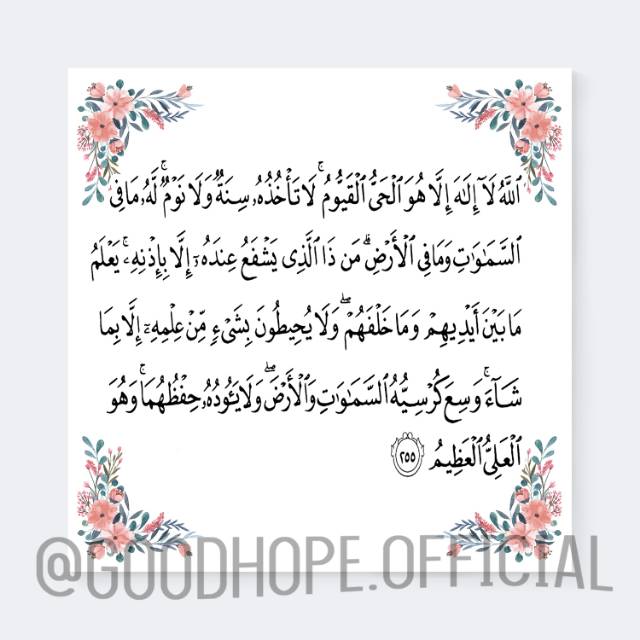 ٱللَّهُ لَآ إِلَٰهَ إِلَّا هُوَ ٱلْحَىُّ ٱلْقَيُّومُ ۚ لَا تَأْخُذُهُۥ سِنَةٌ وَلَا نَوْمٌ ۚ لَّهُۥ مَا فِى
ٱلسَّمَٰوَٰتِ وَمَا فِى ٱلْأَرْضِ ۗ مَن ذَا ٱلَّذِى يَشْفَعُ عِندَهُۥٓ إِلَّا بِإِذْنِهِۦ ۚ يَعْلَمُ
مَا بَيْنَ أَيْدِيهِمْ وَمَا خَلْفَهُمْ ۖ وَلَا يُحِيطُونَ بِشَىْءٍ مِّنْ عِلْمِهِۦٓ إِلَّا بِمَا
شَآءَ ۚ وَسِعَ كُرْسِيُّهُ ٱلسَّمَٰوَٰتِ وَٱلْأَرْضَ ۖ وَلَا يَـُٔودُهُۥ حِفْظُهُمَا ۚ وَهُوَ
ٱلْعَلِىُّ ٱلْعَظِيمُ ٢٥٥
@GOODHOPE.OFFICIAL